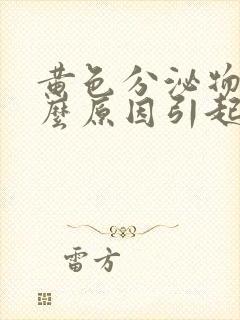 黄色分泌物
麼原因引起
雷方